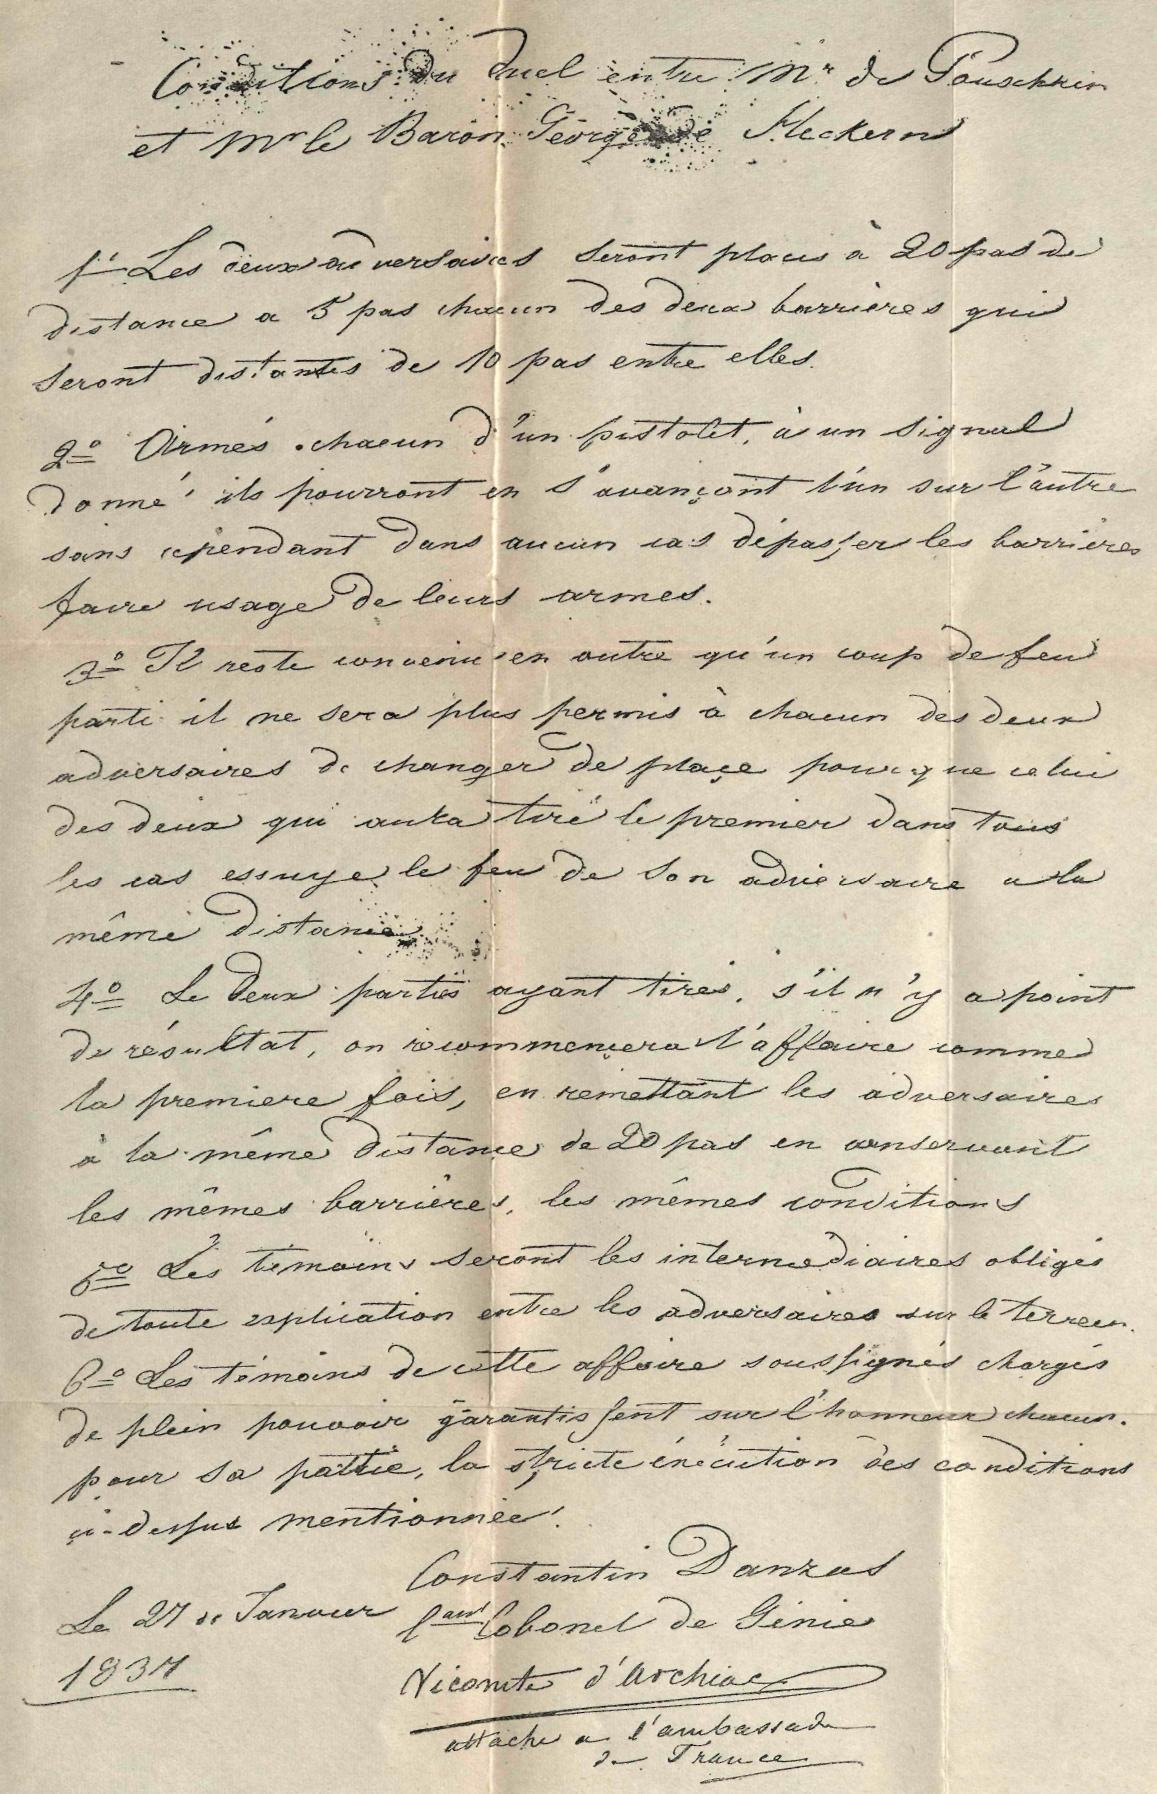 Conditions du duel entre Mr de Pouschkin
et Mr le Baron Georges de Heckern
1º Les deux adversaires seront placés à 20 pas de
distance a 5 pas chacun des deux barrières qui
seront distantes de 10 pas entre elles.
2º Armés chacun d'un pistolet, à un signal
donné ils pourront en s'avançant l'un sur l'autre
sans cependant dans aucun cas dépasser les barrières
faire usage de leurs armes.
3º Il reste convenu en outre qu'un coup de feu
parti il ne sera plus permis à chacun des deux
adversaires de changer de plaçe pour que celui
des deux qui aura tiré le premier dans tous
les cas essuye le feu de son adversaire a la
même distance
4º Le deux parties ayant tirés, s'il n'y a point
de résultat, on recommençera l'affaire comme
la premiere fois, en remettant les adversaires
à la même distance de 20 pas en conservant
les mêmes barrières, les mêmes conditions
5º Les témoins seront les intermediaires obligés
de toute explication entre les adversaires sur le terrein.
6º Les témoins de cette affaire soussignés chargés
de plein pouvoir garantissent sur l'honneur chacun
pour sa partie, la stricte éxécution des conditions
ci-dessus mentionnée.
Constantin Danzas
Le 27 de Janvier lieut Colonel de Génie
1837
Vicomte d'Archiac
attaché a l'ambassade
de France